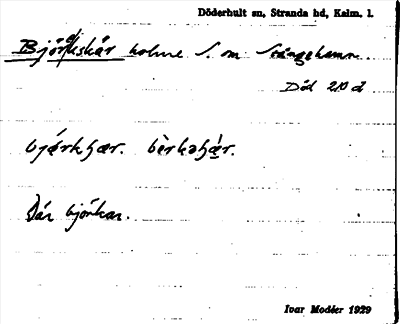 Döderhult sn, Stranda hd, Kalm. l.
Björkskär holme S. om Stångehamn.
Död 210 d
björkhær. bèrkahǽr.
Där björkar.
Ivar Modéer 1929